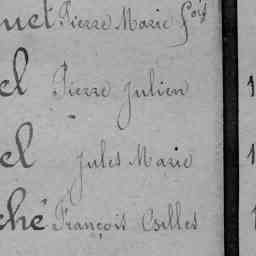 uet Pierre Marie Fois
el Pierre Julien
el Jules Marie
ché François Gilles